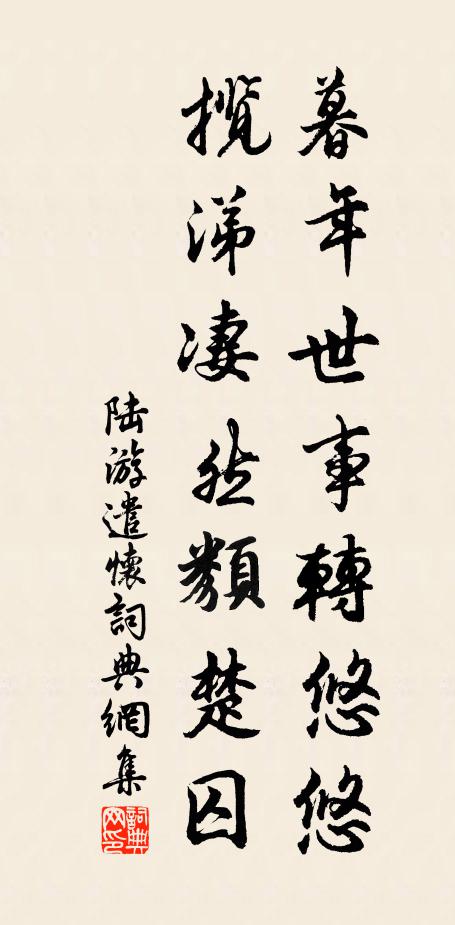 暮年世事轉悠悠
攬涕凄然類楚囚
陆游遣懷詞典網集
詞典網印